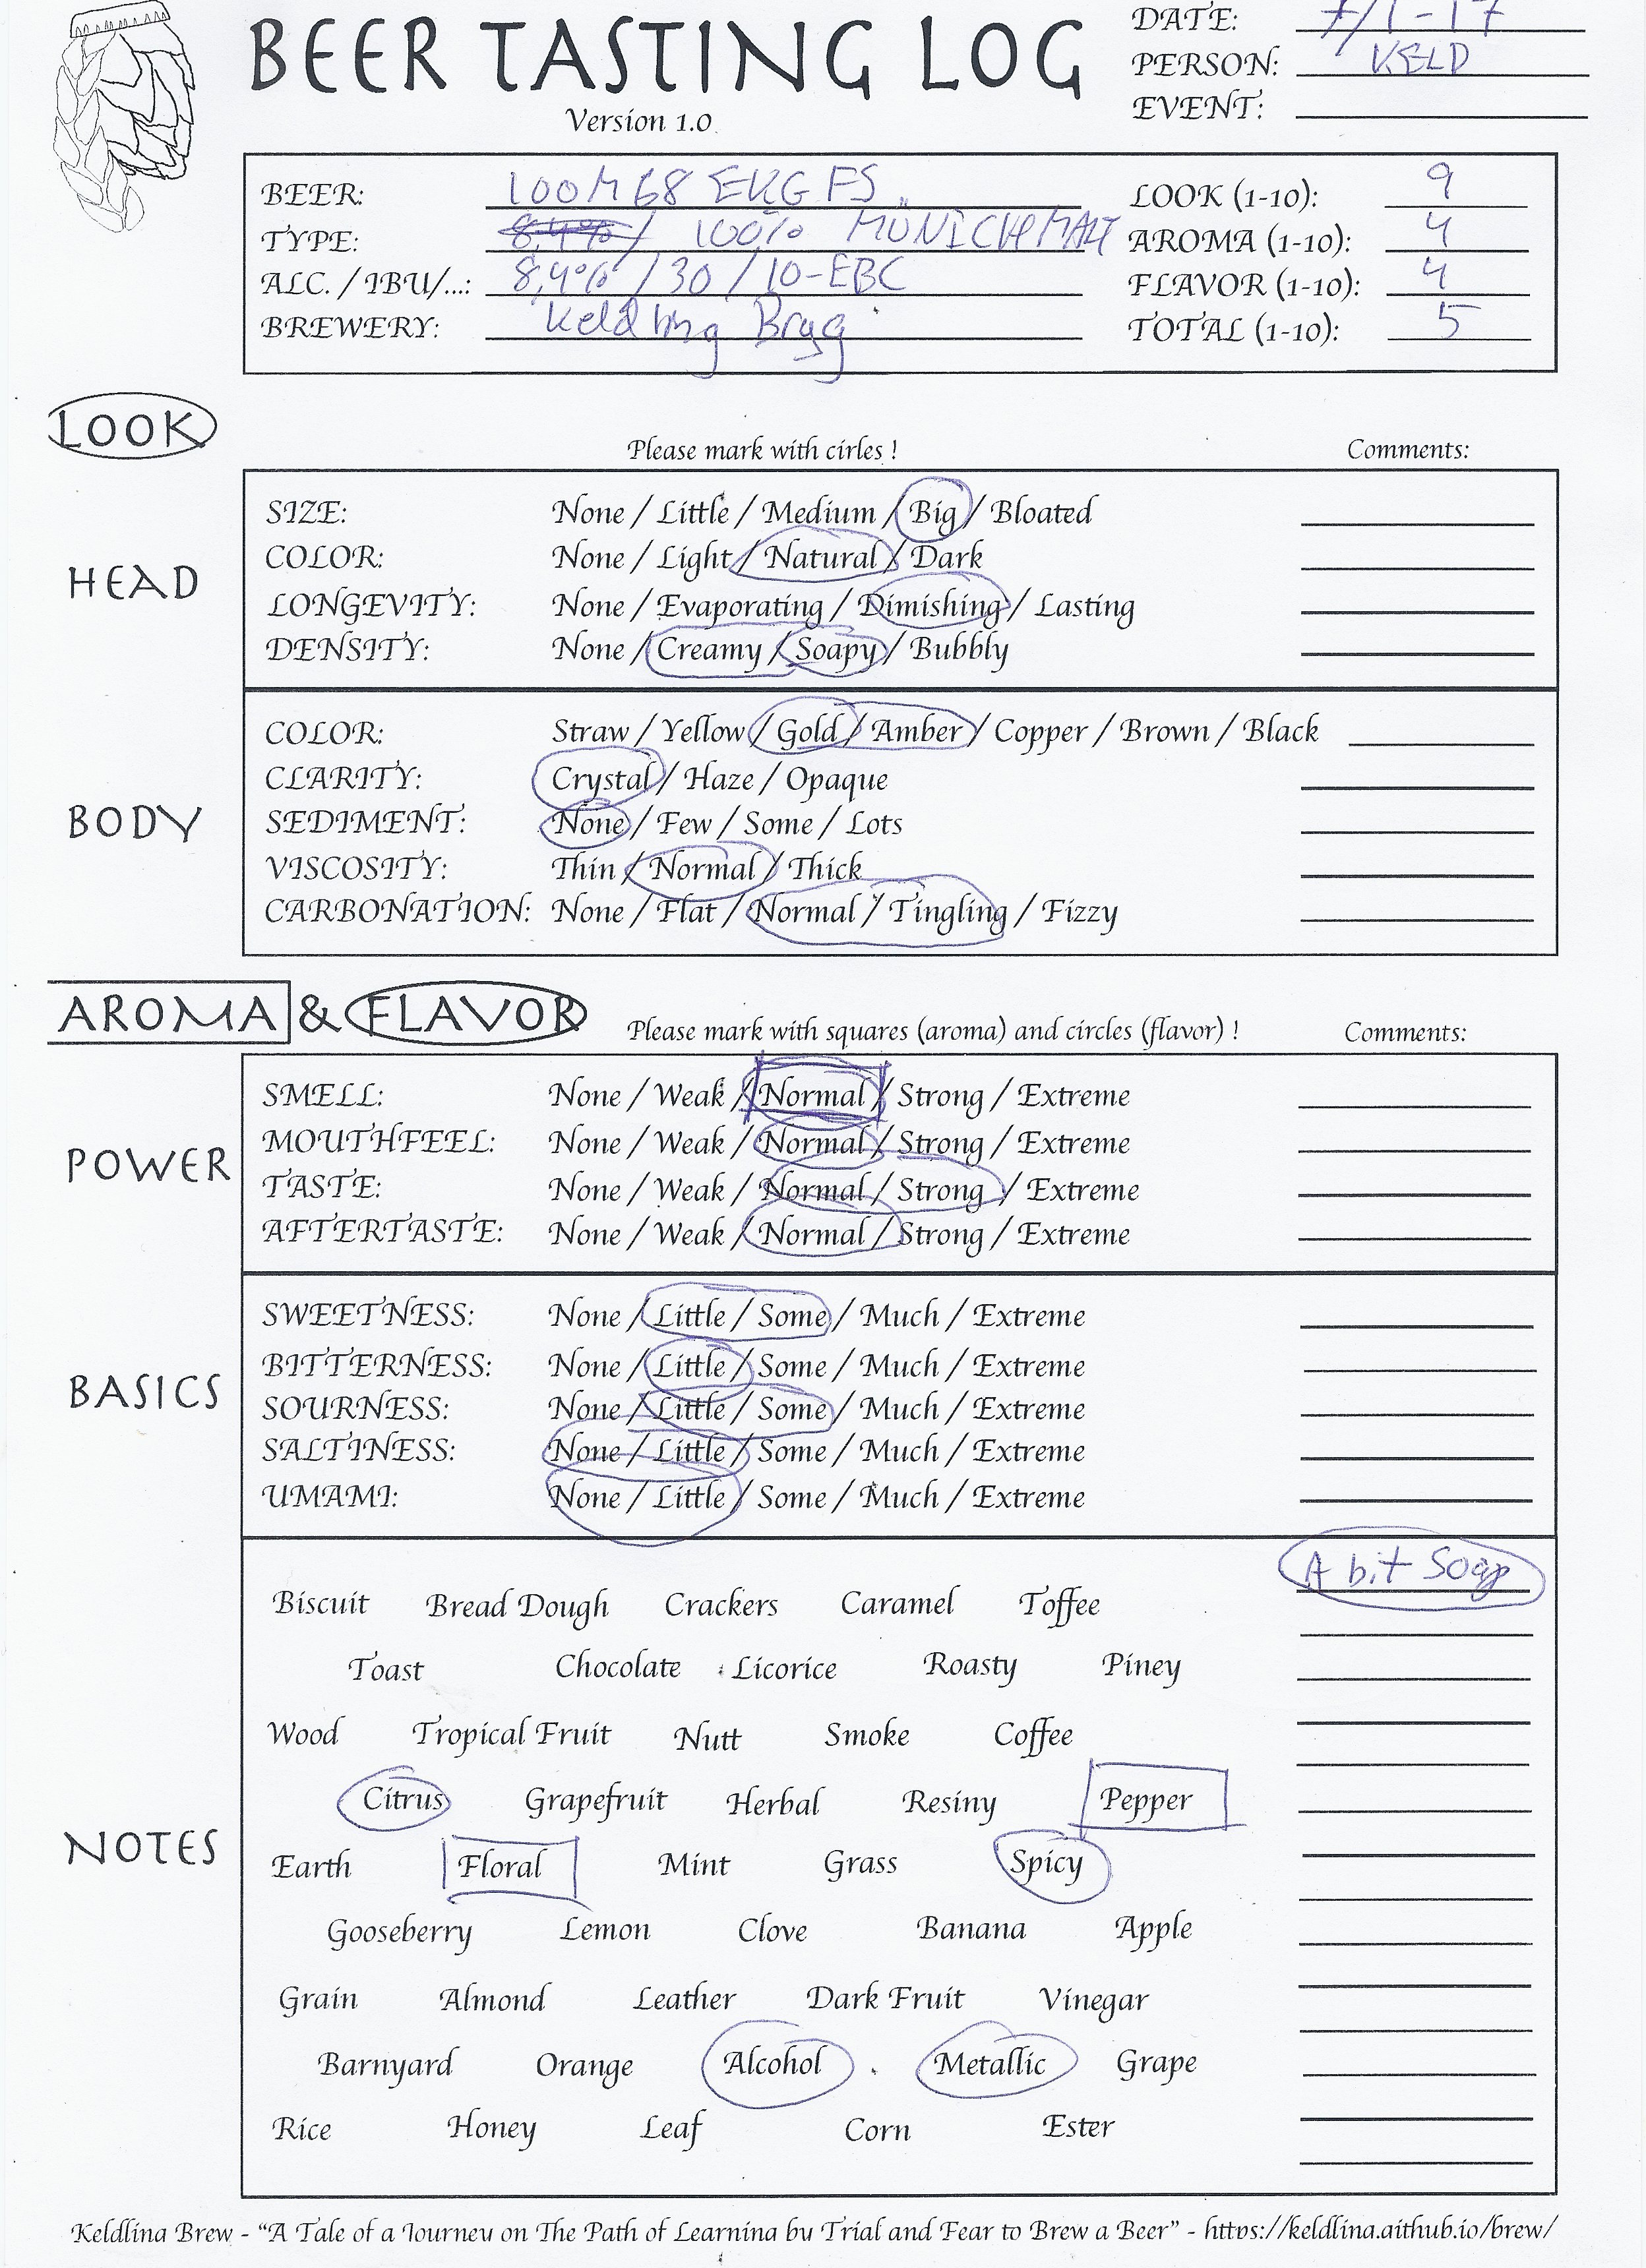 BEER TASTING LOG
Version 1.0
DATE: 7/1-17
PERSON: KELD
EVENT:
BEER: 100M68 EKG FS
TYPE: 8,4% / 100% MÜNICH MALT
ALC. / IBU/...: 8,4% / 30 / 10-EBC
BREWERY: Keldling Brygg
LOOK (1-10): 9
AROMA (1-10): 4
FLAVOR (1-10): 4
TOTAL (1-10): 5
LOOK
Please mark with cirles !
Comments:
HEAD
SIZE: None / Little / Medium / Big / Bloated
COLOR: None / Light / Natural / Dark
LONGEVITY: None / Evaporating / Dimishing / Lasting
DENSITY: None / Creamy / Soapy / Bubbly
BODY
COLOR: Straw / Yellow / Gold / Amber / Copper / Brown / Black
CLARITY: Crystal / Haze / Opaque
SEDIMENT: None / Few / Some / Lots
VISCOSITY: Thin / Normal / Thick
CARBONATION: None / Flat / Normal / Tingling / Fizzy
AROMA & FLAVOR
Please mark with squares (aroma) and circles (flavor) !
Comments:
POWER
SMELL: None / Weak / Normal / Strong / Extreme
MOUTHFEEL: None / Weak / Normal / Strong / Extreme
TASTE: None / Weak / Normal / Strong / Extreme
AFTERTASTE: None / Weak / Normal / Strong / Extreme
BASICS
SWEETNESS: None / Little / Some / Much / Extreme
BITTERNESS: None / Little / Some / Much / Extreme
SOURNESS: None / Little / Some / Much / Extreme
SALTINESS: None / Little / Some / Much / Extreme
UMAMI: None / Little / Some / Much / Extreme
NOTES
A bit Soap
Biscuit Bread Dough Crackers Caramel Toffee
Toast Chocolate Licorice Roasty Piney
Wood Tropical Fruit Nutt Smoke Coffee
Citrus Grapefruit Herbal Resiny Pepper
Earth Floral Mint Grass Spicy
Gooseberry Lemon Clove Banana Apple
Grain Almond Leather Dark Fruit Vinegar
Barnyard Orange Alcohol Metallic Grape
Rice Honey Leaf Corn Ester
Keldling Brew - "A Tale of a Journey on The Path of Learning by Trial and Fear to Brew a Beer" - https://keldling.github.io/brew/